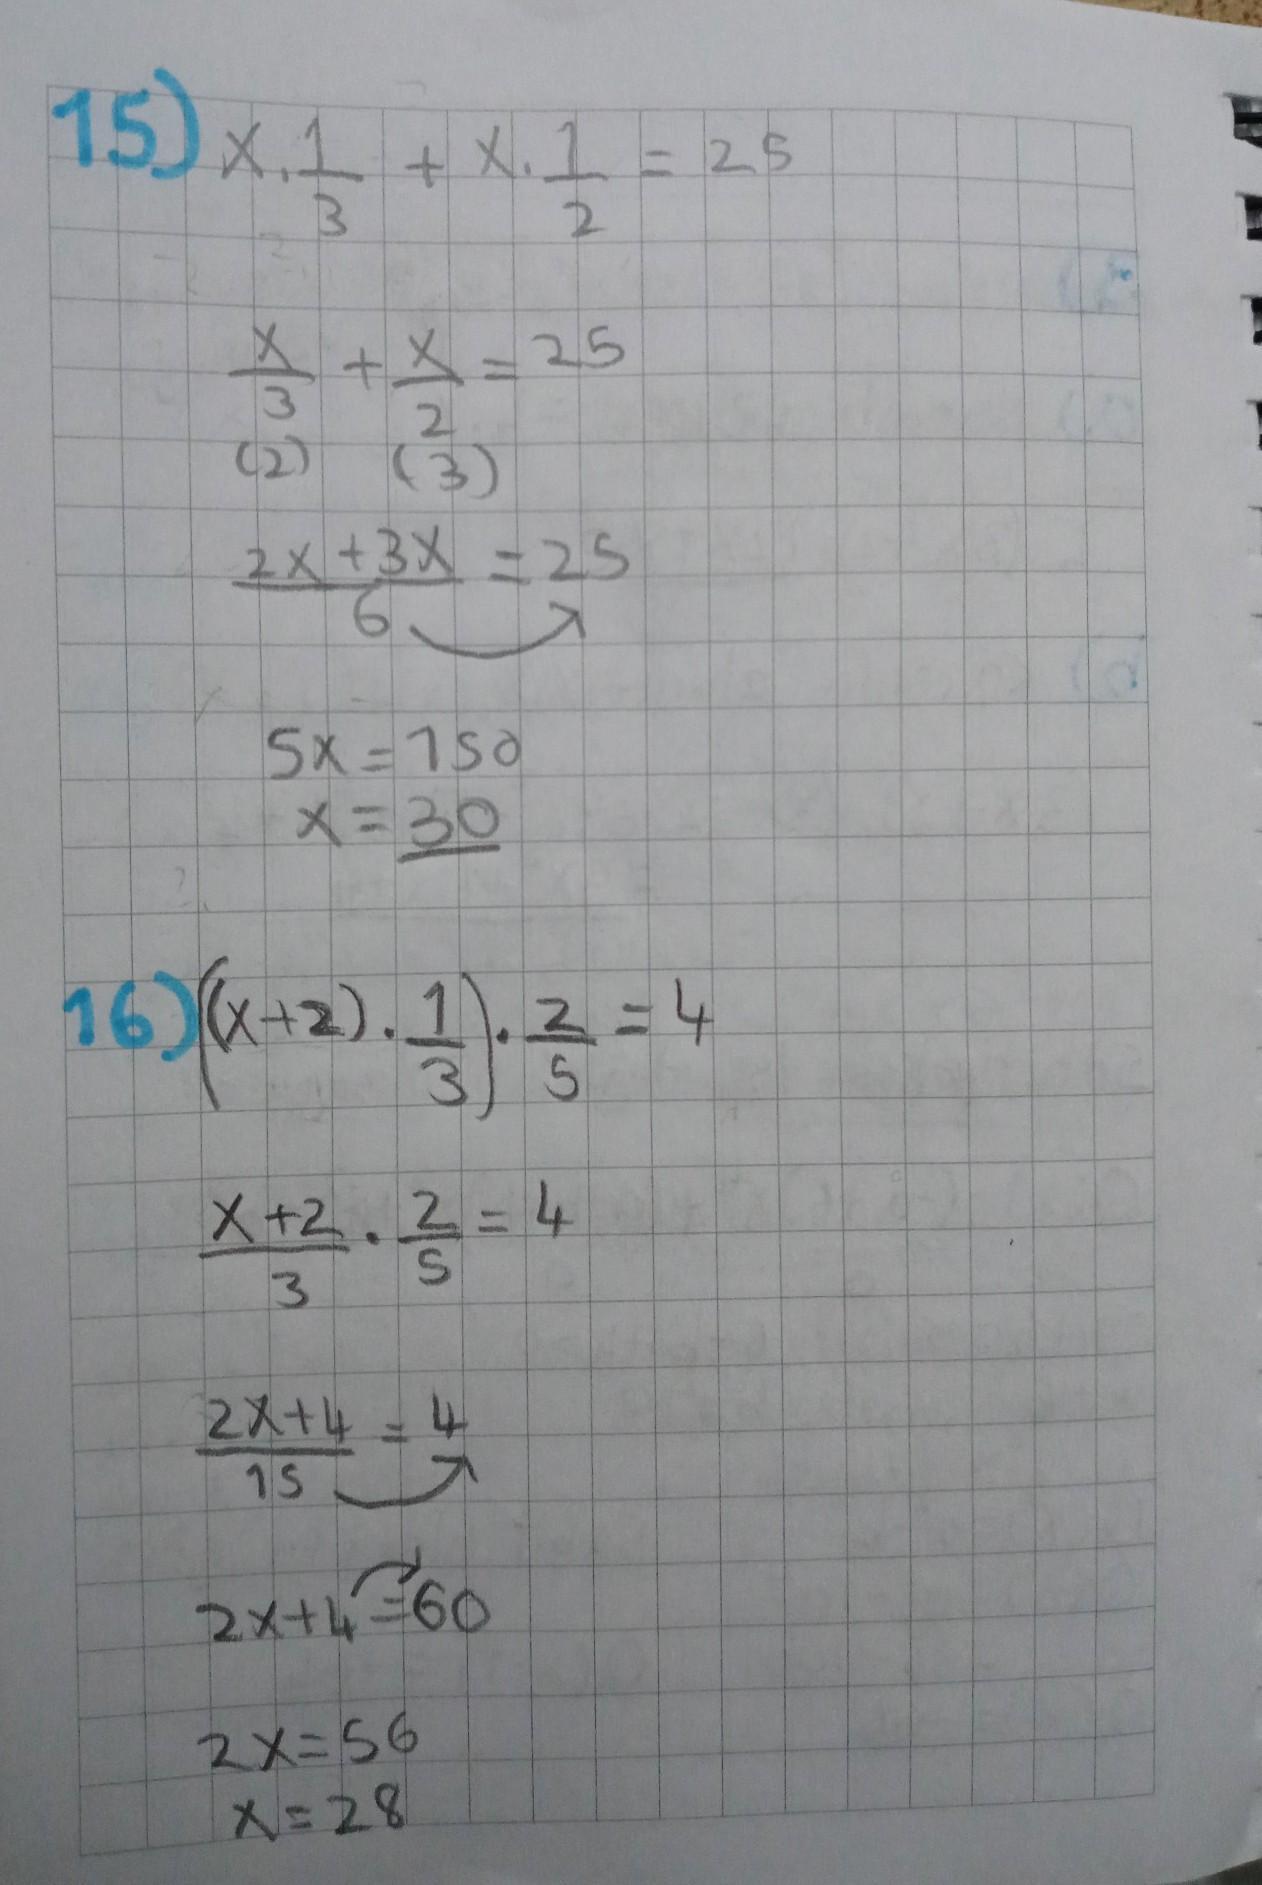 15) x · 1/3 + x · 1/2 = 25
x/3 + x/2 = 25
(2) (3)
2x + 3x / 6 = 25
5x = 150
x = 30
16) ((x+2) · 1/3) · 2/5 = 4
x+2/3 · 2/5 = 4
2x+4/15 = 4
2x+4 = 60
2x = 56
x = 28